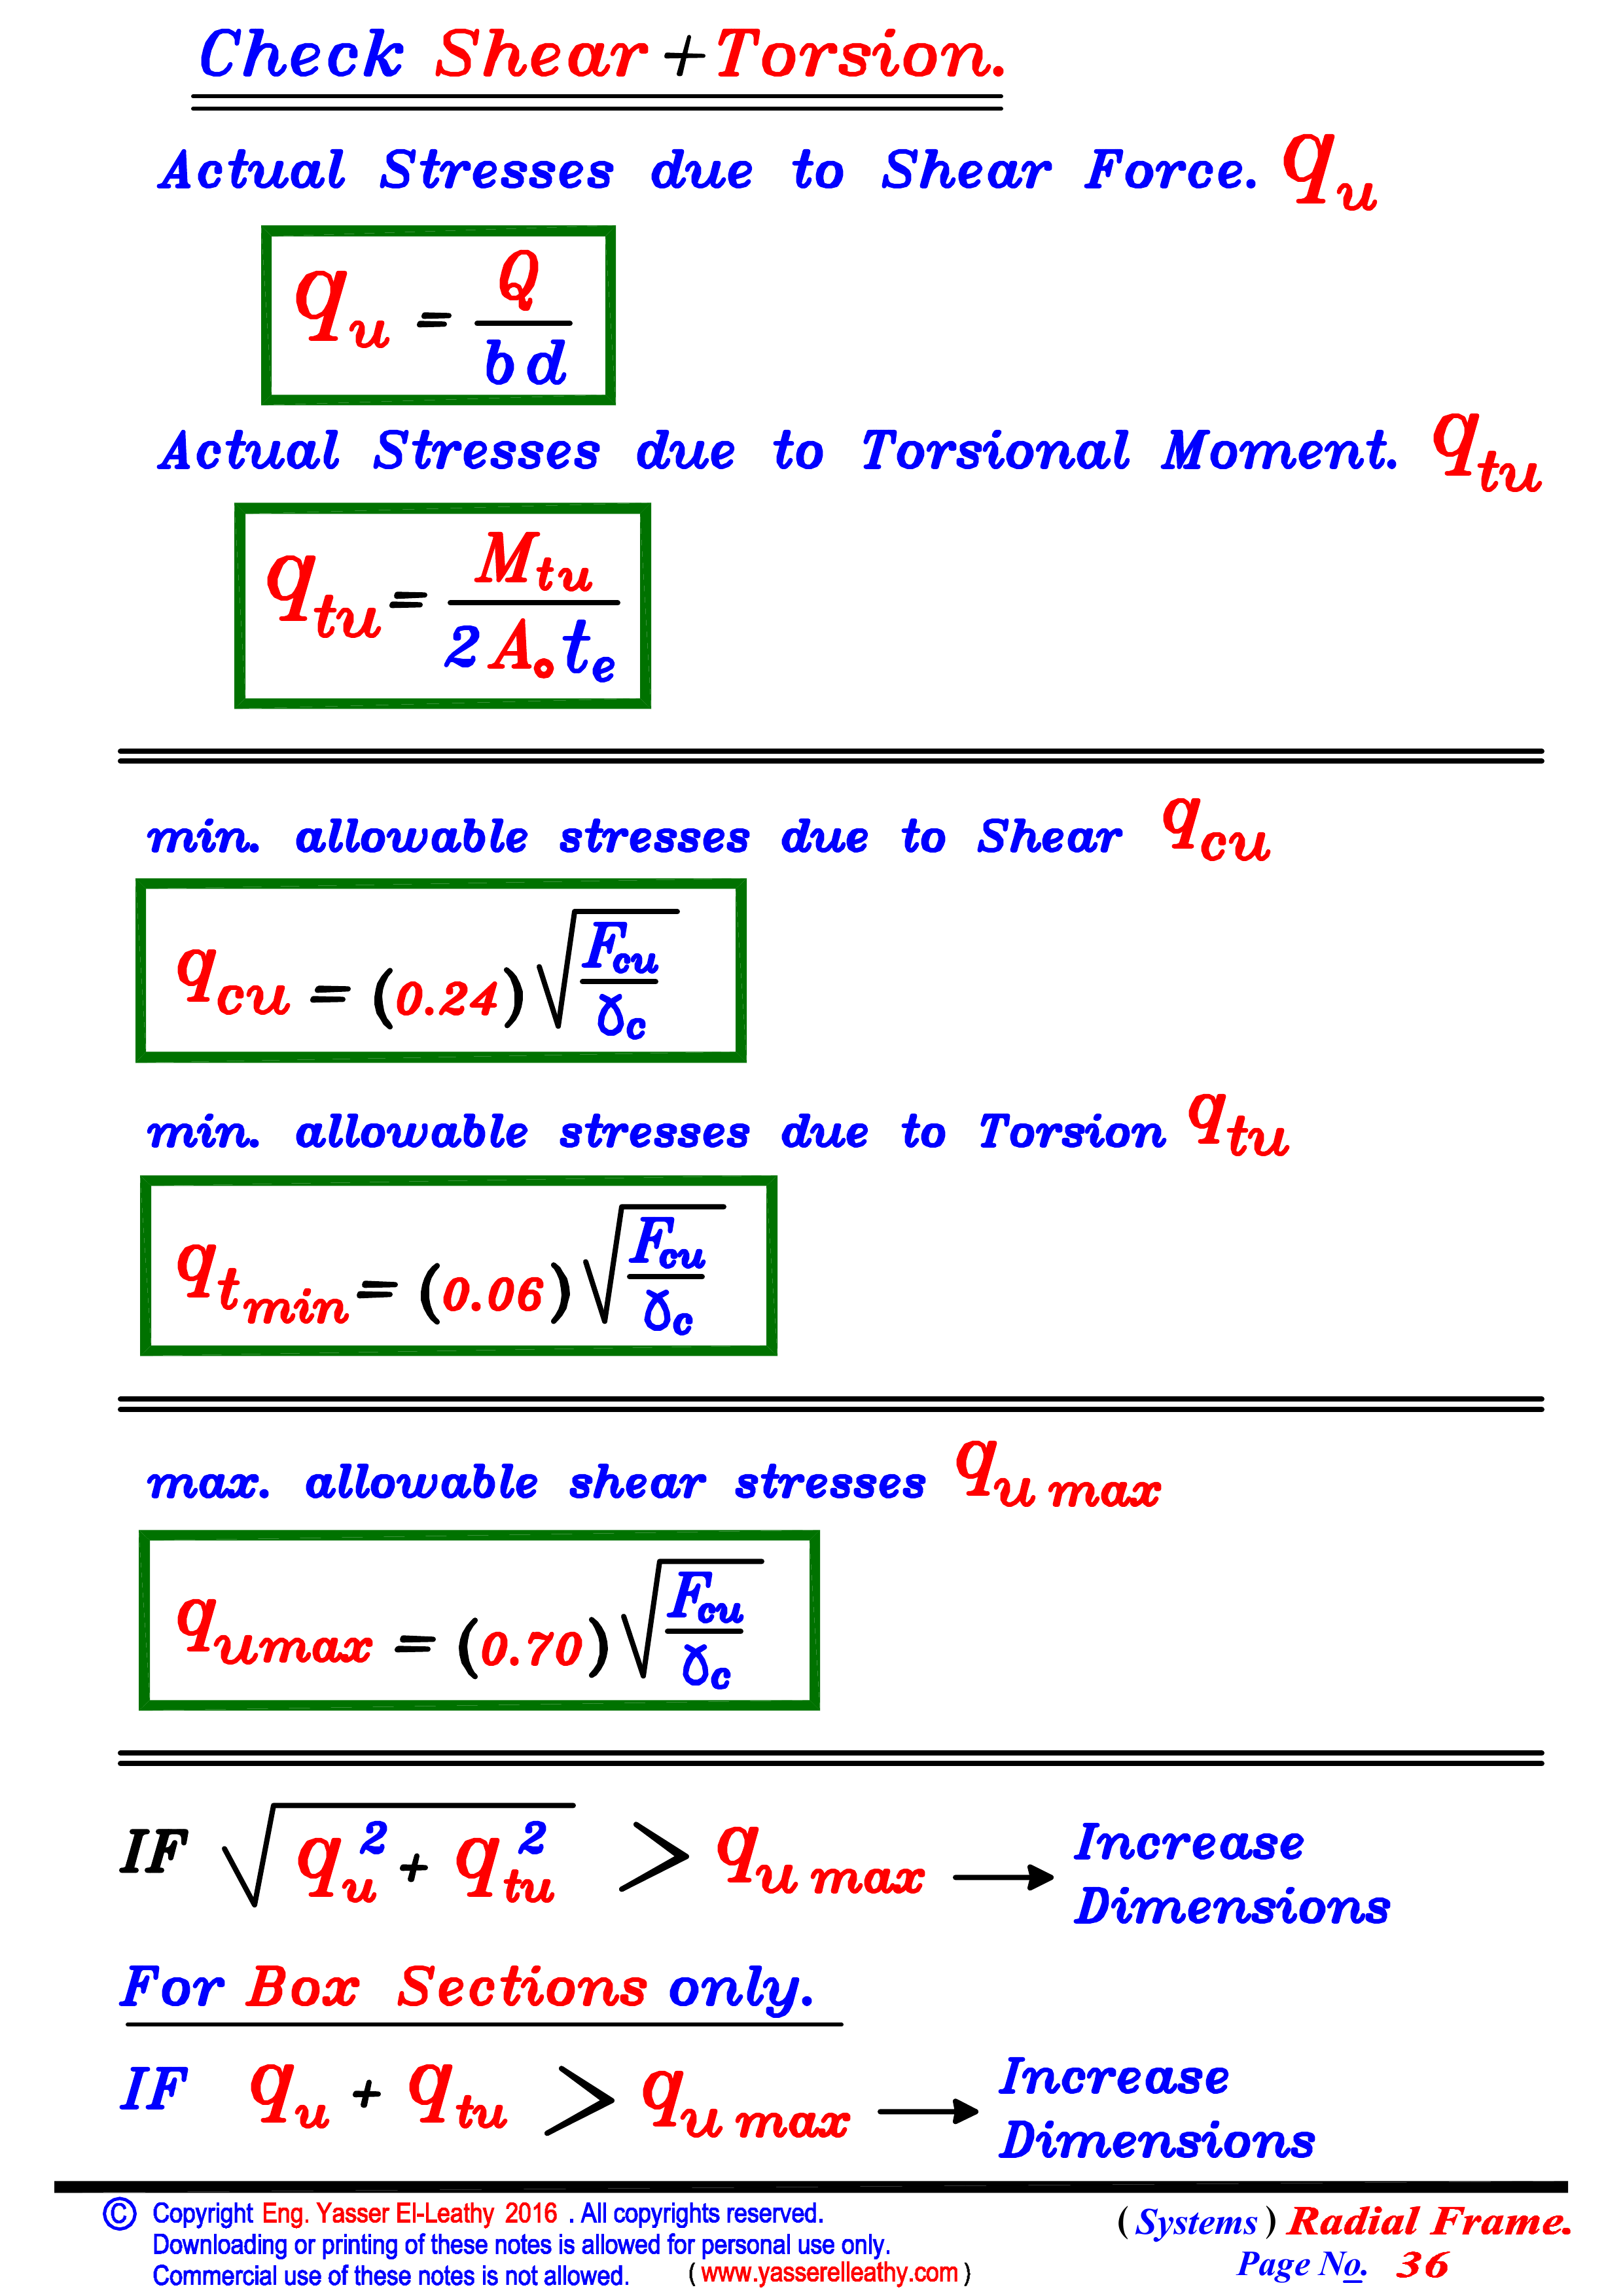 Check Shear + Torsion.
Actual Stresses due to Shear Force. q_u
q_u = Q / b d
Actual Stresses due to Torsional Moment. q_tu
q_tu = M_tu / 2 A_o t_e
min. allowable stresses due to Shear q_cu
q_cu = (0.24) √(F_cu / γ_c)
min. allowable stresses due to Torsion q_tu
q_t min = (0.06) √(F_cu / γ_c)
max. allowable shear stresses q_u max
q_u max = (0.70) √(F_cu / γ_c)
IF √(q_u² + q_tu²) > q_u max → Increase
Dimensions
For Box Sections only.
IF q_u + q_tu > q_u max → Increase
Dimensions
© Copyright Eng. Yasser El-Leathy 2016 . All copyrights reserved.
Downloading or printing of these notes is allowed for personal use only.
Commercial use of these notes is not allowed. ( www.yasserelleathy.com )
( Systems ) Radial Frame.
Page No. 36